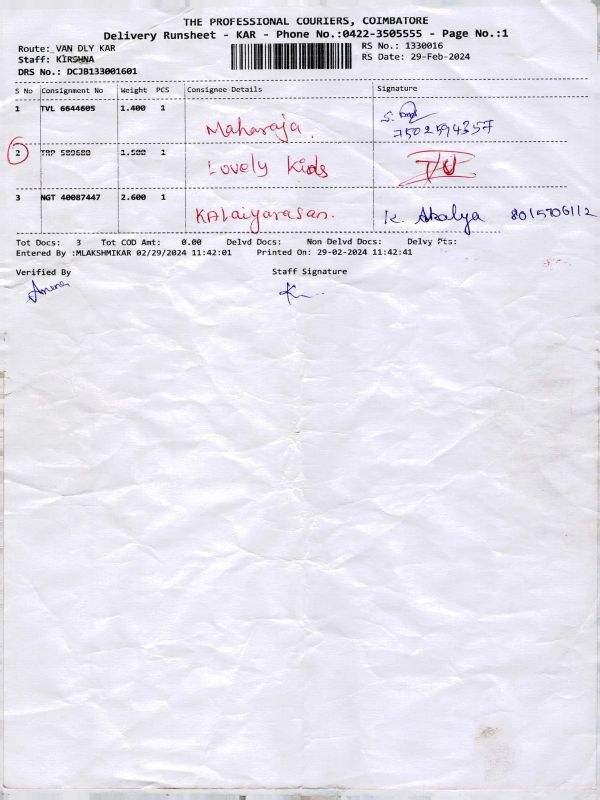 THE PROFESSIONAL COURIERS, COIMBATORE
Delivery Runsheet - KAR - Phone No.:0422-3505555 - Page No.:1
Route: VAN DLY KAR
RS No.: 1330016
Staff: KIRSHNA
RS Date: 29-Feb-2024
DRS No.: DCJB133001601
S No Consignment No Weight PCS Consignee Details Signature
1 TVL 6644605 1.400 1
Maharaja.
7502594357
2 TRP 589680 1.500 1
Lovely Kids
3 NGT 40087447 2.600 1
KALaiyarasan. K. Akalya 8015706112
Tot Docs: 3 Tot COD Amt: 0.00 Delvd Docs: Non Delvd Docs: Delvy Pts:
Entered By :MLAKSHMIKAR 02/29/2024 11:42:01 Printed On: 29-02-2024 11:42:41
Verified By Staff Signature